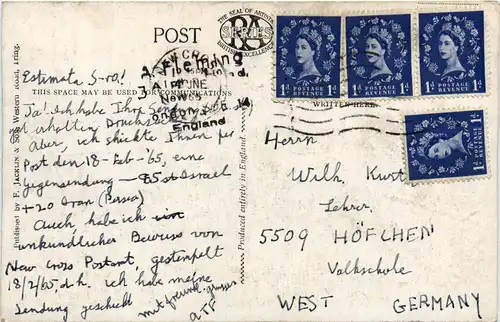 POST
THE SEAL OF ARTISTIC
RA
SERIES
BRITISH EXCELLENCE
Fleming
New
England
THIS SPACE MAY BE USED FOR COMMUNICATIONS
WRITTEN HERE
Estimata S-ro!
Ja! Ich habe Ihre
not erholten Drucksache
Aber, ich schickte Ihnen per
Post den 18-Feb-'65, eine
Gegensendung - 85 st Israel
+ 20 Iran (Persia)
Auch, habe ich
unkundlicher Beweiss von
New Cross Postamt, gestempelt
18/2/65 d.h. ich habe meine
Sendung geschickt
mit freundl. gruss
Published by F. Jacklin & Son, Western Road, Tring.
Produced entirely in England.
1d POSTAGE REVENUE 1d
1d POSTAGE REVENUE 1d
1d POSTAGE REVENUE 1d
1d POSTAGE REVENUE 1d
Herrn
Wilh. Kurt
Lehrer.
5509 HÖFCHEN
Volkschole
WEST GERMANY